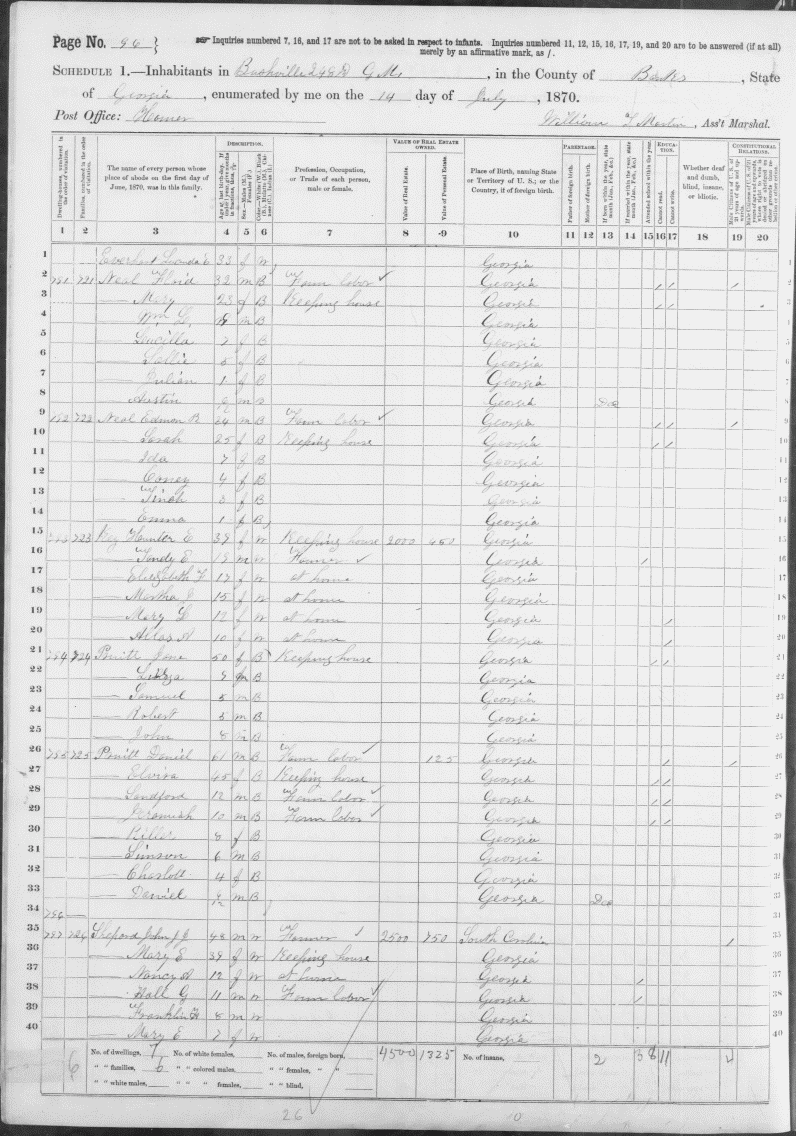 Page No. 96
Inquiries numbered 7, 16, and 17 are not to be asked in respect to infants. Inquiries numbered 11, 12, 15, 16, 17, 19, and 20 are to be answered (if at all) merely by an affirmative mark, as /.
SCHEDULE 1.—Inhabitants in Bushville 248th G.M., in the County of Banks, State
of Georgia, enumerated by me on the 14 day of July, 1870.
Post Office: Homer
William T Martin, Ass't Marshal.
DESCRIPTION. VALUE OF REAL ESTATE OWNED. PARENTAGE. EDUCATION. CONSTITUTIONAL RELATIONS.
Dwelling-houses, numbered in the order of visitation. Families, numbered in the order of visitation. The name of every person whose place of abode on the first day of June, 1870, was in this family. Profession, Occupation, or Trade of each person, male or female. Value of Real Estate. Value of Personal Estate. Place of Birth, naming State or Territory of U. S.; or the Country, if of foreign birth. Father of foreign birth. Mother of foreign birth. Attended school within the year. Cannot read. Cannot write. Whether deaf and dumb, blind, insane, or idiotic.
1 2 3 4 5 6 7 8 9 10 11 12 13 14 15 16 17 18 19 20
1 Everhart 33 f W Georgia
2 781 721 Neal Floid 32 m B Farm labor Georgia / / /
3 — Mary 23 f B Keeping house Georgia / /
4 — Wm G. m B Georgia
5 — Lucilla 7 f B Georgia
6 — Sallie 5 f B Georgia
7 — Julian 1 f B Georgia
8 — Austin m B Georgia Dec
9 782 722 Neal Edmon B 24 m B Farm labor Georgia / / /
10 — Sarah 25 f B Keeping house Georgia / /
11 — Ida 7 f B Georgia
12 — Coney 4 f B Georgia
13 — 3 f B Georgia
14 — Emma 1 f B Georgia
15 723 Key E 39 f W Keeping house 2000 450 Georgia
16 — E 19 m W Farmer Georgia /
17 — Elizabeth F 17 f W at home Georgia
18 — Martha J 15 f W at home Georgia
19 — Mary L 12 f W at home Georgia /
20 — A 10 f W at home Georgia /
21 784 724 Pruitt Jane 50 f B Keeping house Georgia / /
22 — 9 B Georgia
23 — Samuel 5 m B Georgia
24 — Robert 3 m B Georgia
25 — John 8 m B Georgia
26 785 725 Pruitt Daniel 61 m B Farm labor 125 Georgia / /
27 — Elvira 45 f B Keeping house Georgia / /
28 — Sandford 12 m B Farm labor Georgia / /
29 — Jeremiah 10 m B Farm labor Georgia / /
30 — Killer 8 f B Georgia
31 — Simson 6 m B Georgia
32 — Charlott 4 f B Georgia
33 — Daniel m B Georgia Dec
34 786 —
35 787 726 Sheperd John J J 48 m W Farmer 2500 750 South Carolina /
36 — Mary E 39 f W Keeping house Georgia
37 — Nancy A 12 f W at home Georgia /
38 — Hall G 11 m W Farm labor Georgia /
39 — Franklin H 8 m W Georgia
40 — Mary E 7 f W Georgia
No. of dwellings, 7 No. of white females, No. of males, foreign born, 4500 1325 No. of insane, 2 3 8 11 4
6 " " families, 6 " " colored males, " " females, " "
" " white males, " " " females, " " blind,
26 0